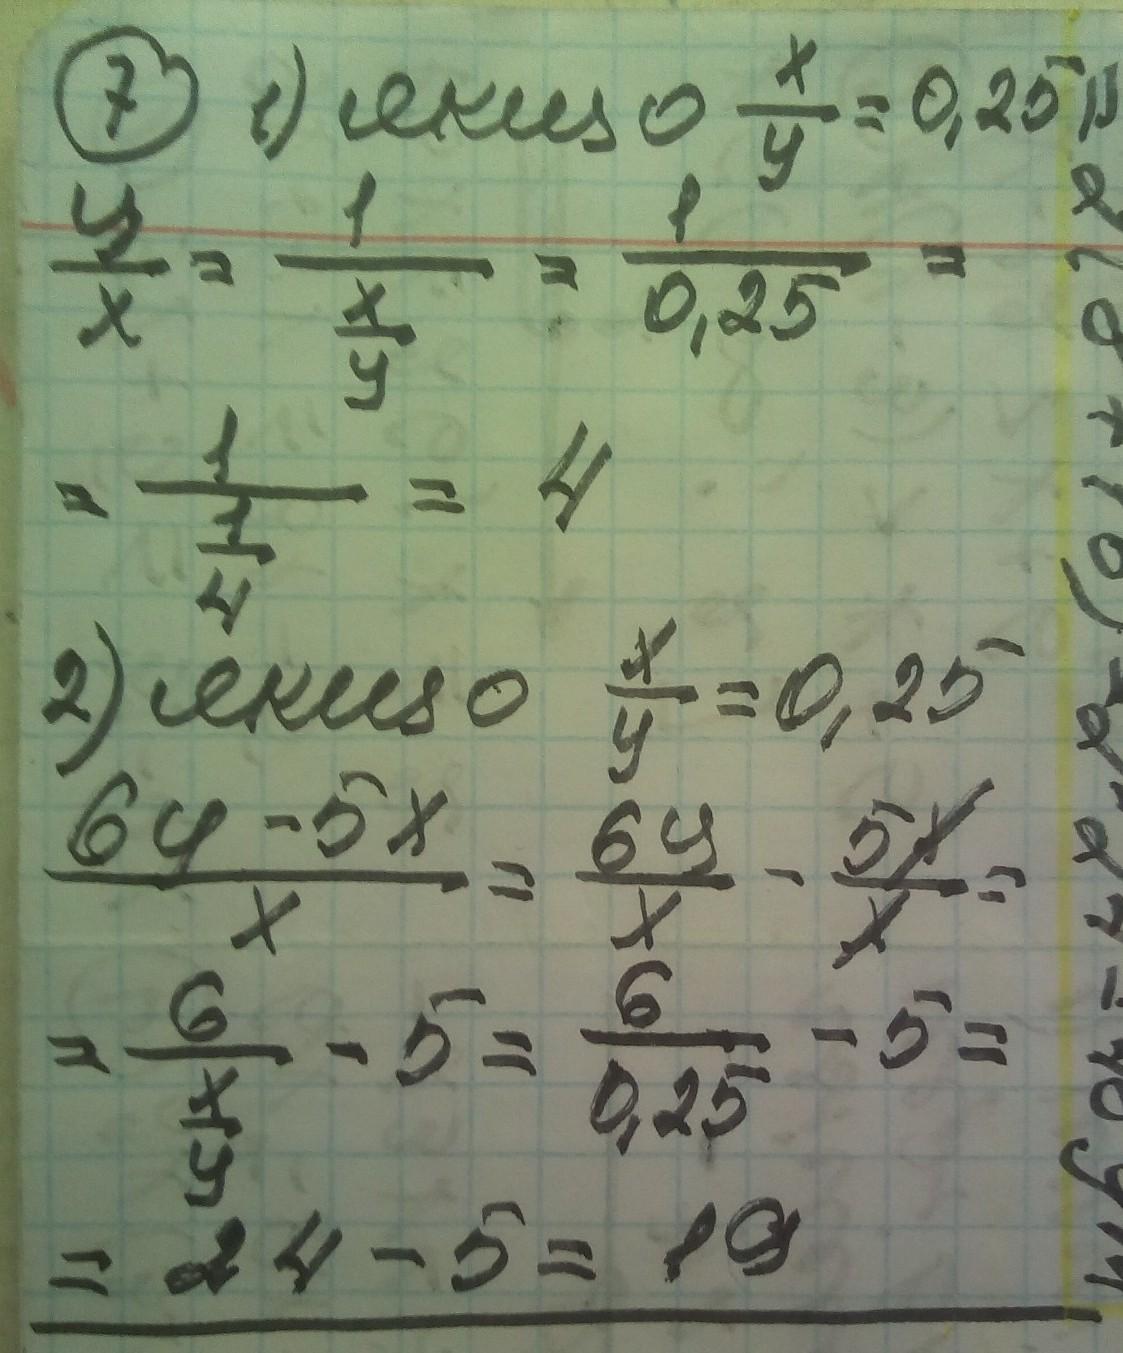 7 1) якщо x/y = 0,25
y/x = 1/(x/y) = 1/0,25 =
= 1/(1/4) = 4
2) якщо x/y = 0,25
(6y - 5x)/x = 6y/x - 5x/x =
= 6/(x/y) - 5 = 6/0,25 - 5 =
= 24 - 5 = 19